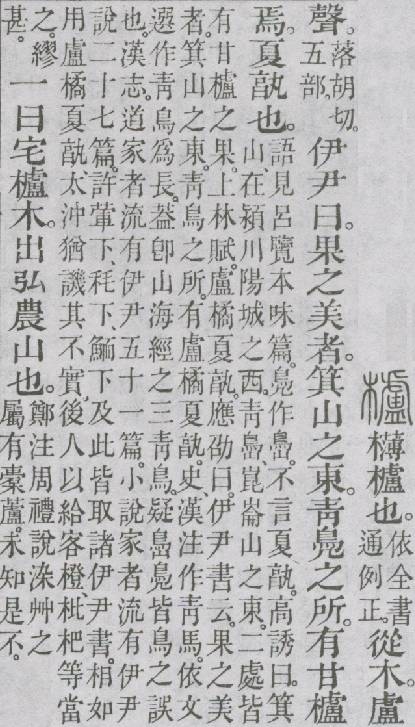 櫨欂櫨也。依全書通例正。從木。盧
聲。落胡切。五部。伊尹曰。果之美者。箕山之東。靑鳧之所。有甘櫨
焉。夏孰也。語見呂覽本味篇。鳧作㠀。不言夏孰。高誘曰。箕
山、在潁川陽城之西。靑㠀崑崙山之東。二處皆
有甘櫨之果。上林賦。盧橘夏孰。應劭曰。伊尹書云。果之美
者。箕山之東。靑鳥之所。有盧橘夏孰。史漢注作靑馬。依文
選作靑鳥爲長。葢卽山海經之三靑鳥。疑㠀鳧皆鳥之誤
也。漢志。道家者流有伊尹五十一篇。小說家者流有伊尹
說二十七篇。許葷下、秏下、鮞下及此皆取諸伊尹書。相如
用盧橘夏孰太沖猶譏其不實。後人以給客橙、枇杷等當
之。繆甚。一曰宅櫨木。出弘農山也。鄭注周禮說染艸之屬有橐蘆。未知是不。